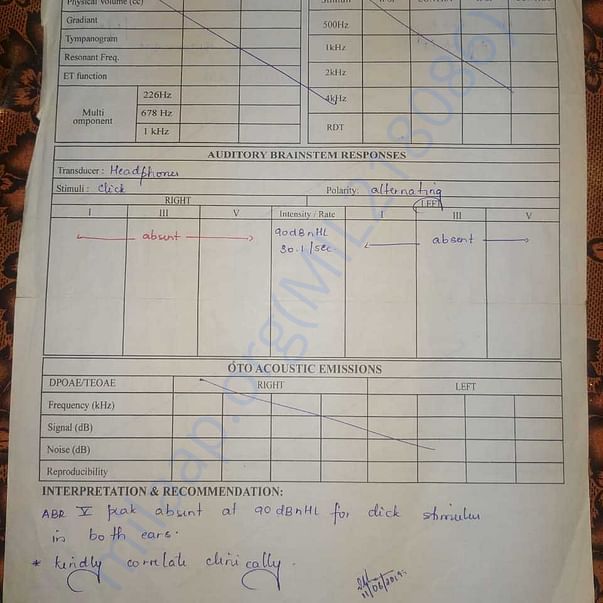 Physical Volume (cc)
Gradiant
Tympanogram
Resonant Freq.
ET function
Multi omponent
226Hz
678 Hz
1 kHz
500Hz
1kHz
2kHz
4kHz
RDT
AUDITORY BRAINSTEM RESPONSES
Transducer : Headphones
Stimuli : click Polarity: alternating
RIGHT LEFT
I III V Intensity / Rate I III V
absent 90dBnHL absent
30.1/sec
OTO ACOUSTIC EMISSIONS
DPOAE/TEOAE RIGHT LEFT
Frequency (kHz)
Signal (dB)
Noise (dB)
Reproducibility
INTERPRETATION & RECOMMENDATION:
ABR V peak absent at 90 dBnHL for click stimulus
in both ears.
* kindly correlate clinically.
milaap.org(MIL218085)